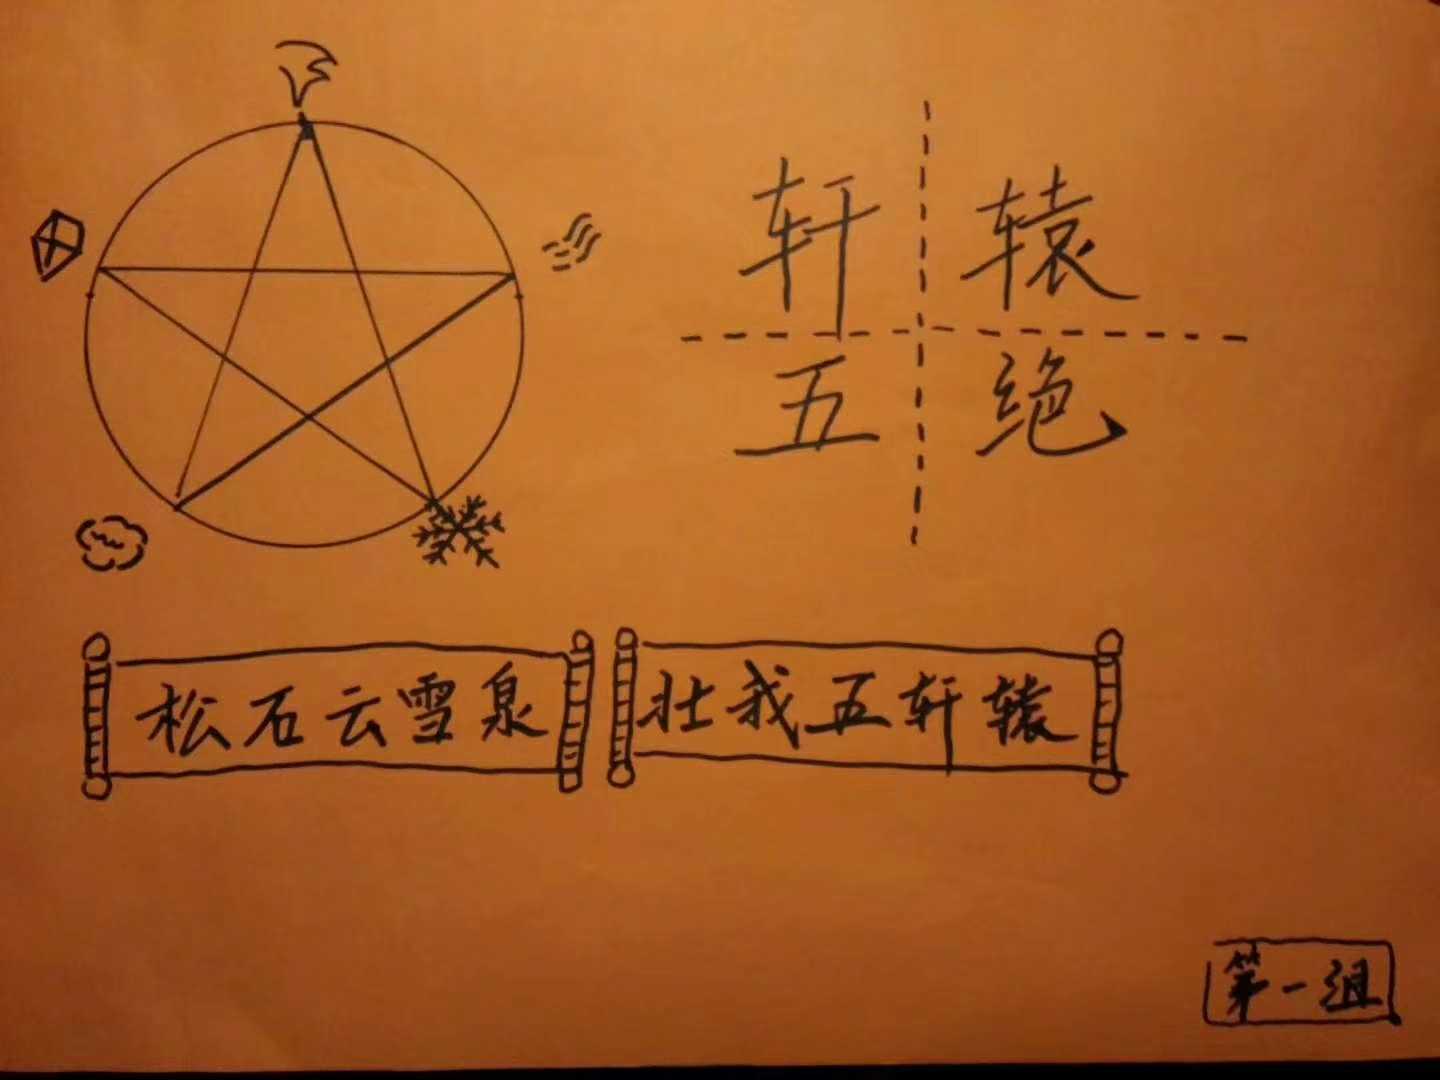 轩辕
五绝
松石云雪泉
壮我五轩辕
第一组